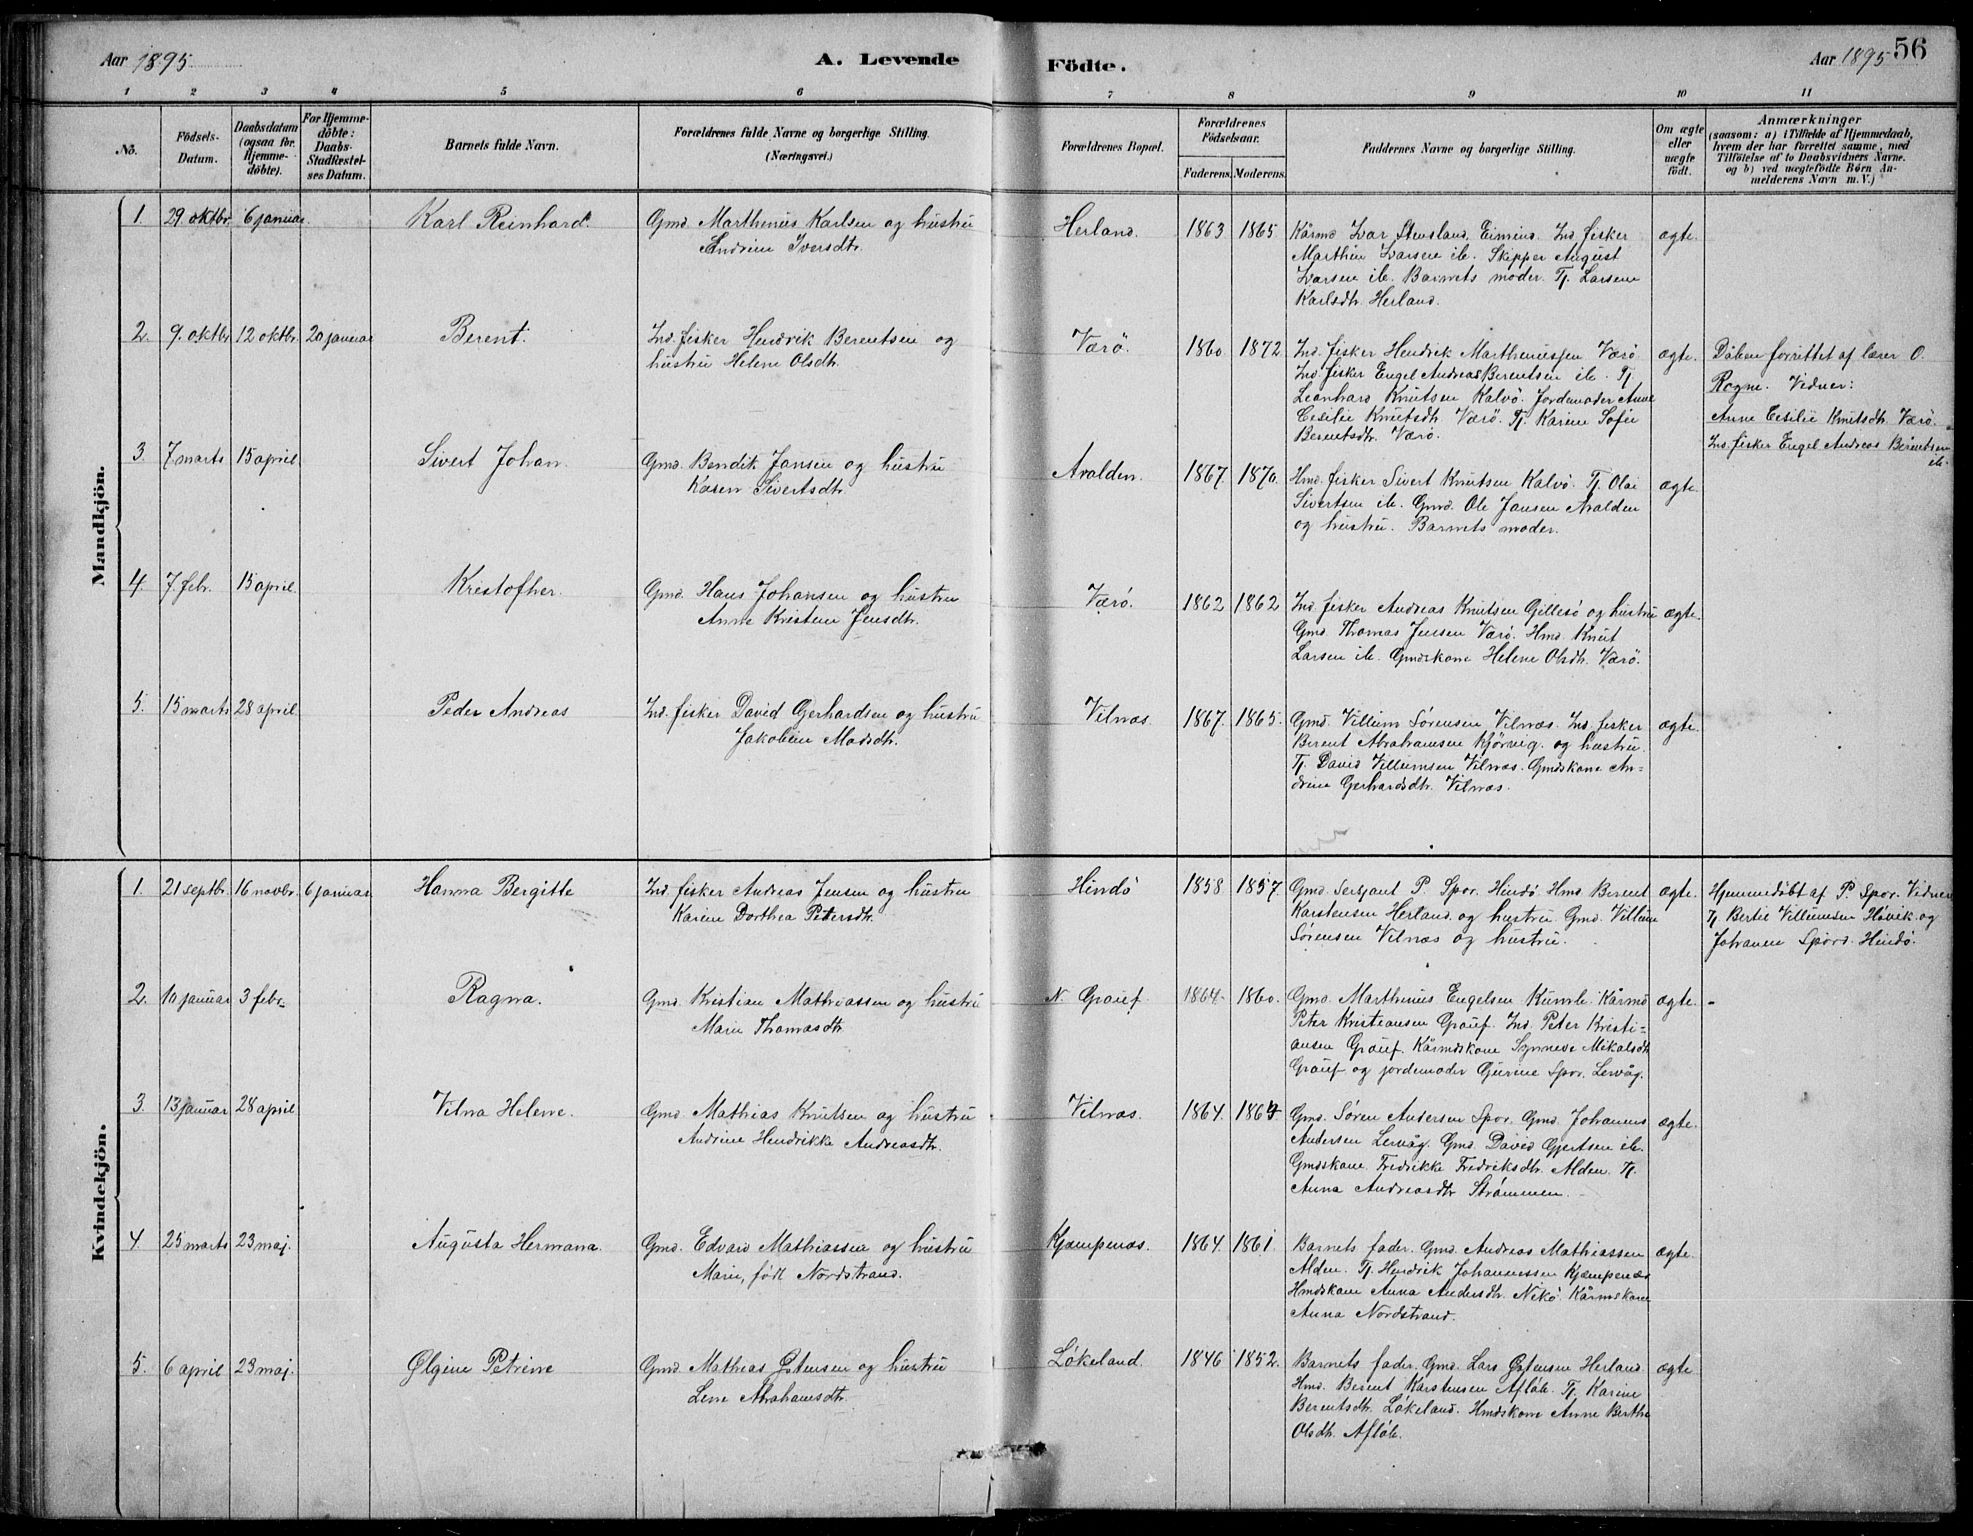 Aar 1895
A. Levende Födte.
Aar 1895 56
1 2 3 4 5 6 7 8 9 10 11
No.
Födsels-Datum.
Daabsdatum (ogsaa for Hjemme-døbte).
For Hjemme-döbte: Daabs-Stadfæstel-ses Datum.
Barnets fulde Navn.
Forældrenes fulde Navne og borgerlige Stilling. (Næringsvei.)
Forældrenes Bopæl.
Forældrenes Födselsaar.
Faderens. Moderens.
Faddernes Navne og borgerlige Stilling.
Om ægte eller uægte födt.
Anmærkninger
(saasom: a) i Tilfælde af Hjemmedaab,
hvem der har forrettet samme, med
Tilföielse af to Daabsvidners Navne.
og b) ved uægtefödte Börn An-
melderens Navn m. V.)
Mandkjön.
1. 29 oktbr. 6 januar. Karl Reinhard. Gmd. Marthinus Karlsen og hustru
Andrine Iversdtr.
Herland. 1863 1865
Kårmd Ivar Stensland, Ind. fisker
Marthin Ivarsen ib. Skipper August
Ivarsen ib. Barnets moder. Pj. Larsine
Karlsdtr. Herland.
ægte.
2. 9. oktbr 12 oktbr. 20 januar Berent. Ind. fisker Hendrik Berentsen og
hustru Helene Olsdtr.
Værö. 1860 1872.
Ind. fisker Hendrik Marthinussen Værö
Ind. fisker Engel Andreas Berentsen ib. Pj.
Leonhard Knutsen Kalvö. Jordemoder Anne
Cesilie Knutsdtr. Værö. Pj. Karine Sofie
Berentsdtr. Værö.
ægte.
Dåben forrettet af lærer O.
Rogne. Vidner:
Anne Cesilie Knutsdtr. Værö.
Ind. fisker Engel Andreas Berentsen
ib.
3 7 marts 15 april. Sivert Johan. Gmd. Bendik Jansen og hustru
Karen Sivertsdtr.
Avalden. 1867. 1870.
Hmd. fisker Sivert Knutsen Kalvö. Pj. Olai
Sivertsen ib. Gmd. Ole Jansen Avalden
og hustru. Barnets moder.
ægte.
4. 7. febr. 15 april. Kristofher. Gmd. Hans Johansen og hustru
Anne Kristine Jensdtr.
Værö. 1862 1862
Ind. fisker Andreas Knutsen Gillesö og hustru
Gmd. Thomas Jensen Værö. Hmd. Knut
Larsen ib. Gmdskone Helene Olsdtr. Værö.
ægte.
5. 15 marts 28 april. Peder Andreas Ind. fisker David Gerhardsen og hustru
Jakobine Madsdtr.
Vilnæs. 1867. 1865.
Gmd. Villum Sörensen Vilnæs. Ind. fisker
Berent Abrahamsen Kjörveg. og hustru.
Pj. David Villumsen Vilnæs. Gmdskone An=
drine Gerhardsdtr. Vilnæs.
ægte.
Kvindekjön.
1. 21 septbr. 16 novbr. 6 januar Hanna Bergitte Ind. fisker Andreas Jensen og hustru
Karine Dorthea Petersdtr.
Hindö 1858. 1857.
Gmd. Sersjant P. Spor. Hindö. Hmd. Berent
Karstensen Herland og hustru. Gmd. Villum
Sörensen Vilnæs og hustru.
ægte.
Hjemmedöbt af P. Spor. Vidner
Pj. Bertil Villumsen Hövik og
Johanne Spord. Hindö.
2. 10 januar 3 febr. Ragna. Gmd. Kristian Mathiassen og hustru
Marie Thomasdtr.
N. Gråuf. 1864. 1860.
Gmd. Marthinus Engelsen Kumle. Kårmd
Peter Kristiansen Gråuf. Ind. Peter Kristi=
ansen Gråuf. Kårmdskone Synneve Mikalsdtr.
Gråuf og jordemoder Gurine Spor. Lervåg.
ægte.
3. 13 januar 28 april Vilna Helene. Gmd. Mathias Knutsen og hustru
Andrine Hendrikke Andreasdtr.
Vilnæs. 1864. 1864
Gmd. Sören Andersen Spor. Gmd. Johannes
Andersen Lervåg. Gmd. David Gjertsen ib.
Gmdskone Fredrikke Fredriksdtr. Alden. Pj.
Anna Andreasdtr Strömmen.
ægte.
4 25 marts 23 maj. Augusta Hermana. Gmd. Edvard Mathiassen og hustru
Marie, födt Nordstrand.
Kjempenæs. 1864. 1861.
Barnets fader. Gmd. Andreas Mathiassen
Alden. Pj. Hendrik Johannessen Kjempenæs
Hmdskone Anna Andersdtr. Nikö. Kårmdskone
Anna Nordstrand.
ægte.
5. 6 april 23 maj. Ølgine Petrine Gmd. Mathias Østensen og hustru
Lene Abrahamsdtr.
Lökeland. 1846 1852.
Barnets fader. Gmd. Lars Østensen Herland.
Hmd. Berent Karstensen Aflöb. Pj. Karine
Berentsdtr. Lökeland. Hmdskone Anne Berthe
Olsdtr. Aflöb.
ægte